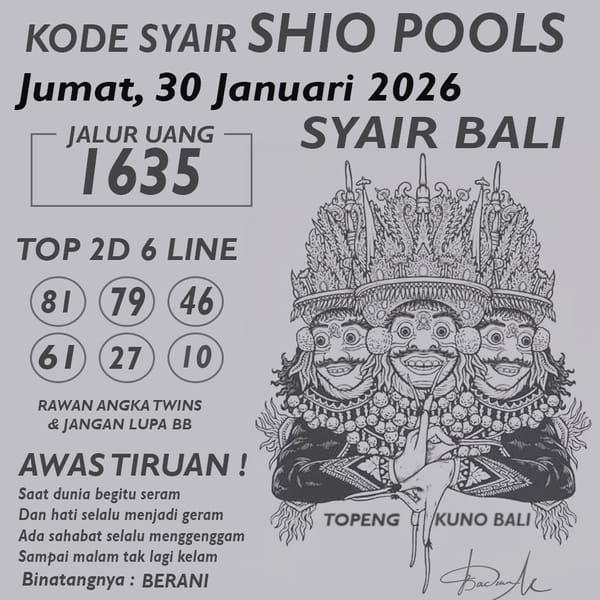 KODE SYAIR SHIO POOLS
Jumat, 30 Januari 2026
JALUR UANG
1635
SYAIR BALI
TOP 2D 6 LINE
81 79 46
61 27 10
RAWAN ANGKA TWINS
& JANGAN LUPA BB
AWAS TIRUAN !
Saat dunia begitu seram
Dan hati selalu menjadi geram
Ada sahabat selalu menggenggam
Sampai malam tak lagi kelam
Binatangnya : BERANI
TOPENG KUNO BALI